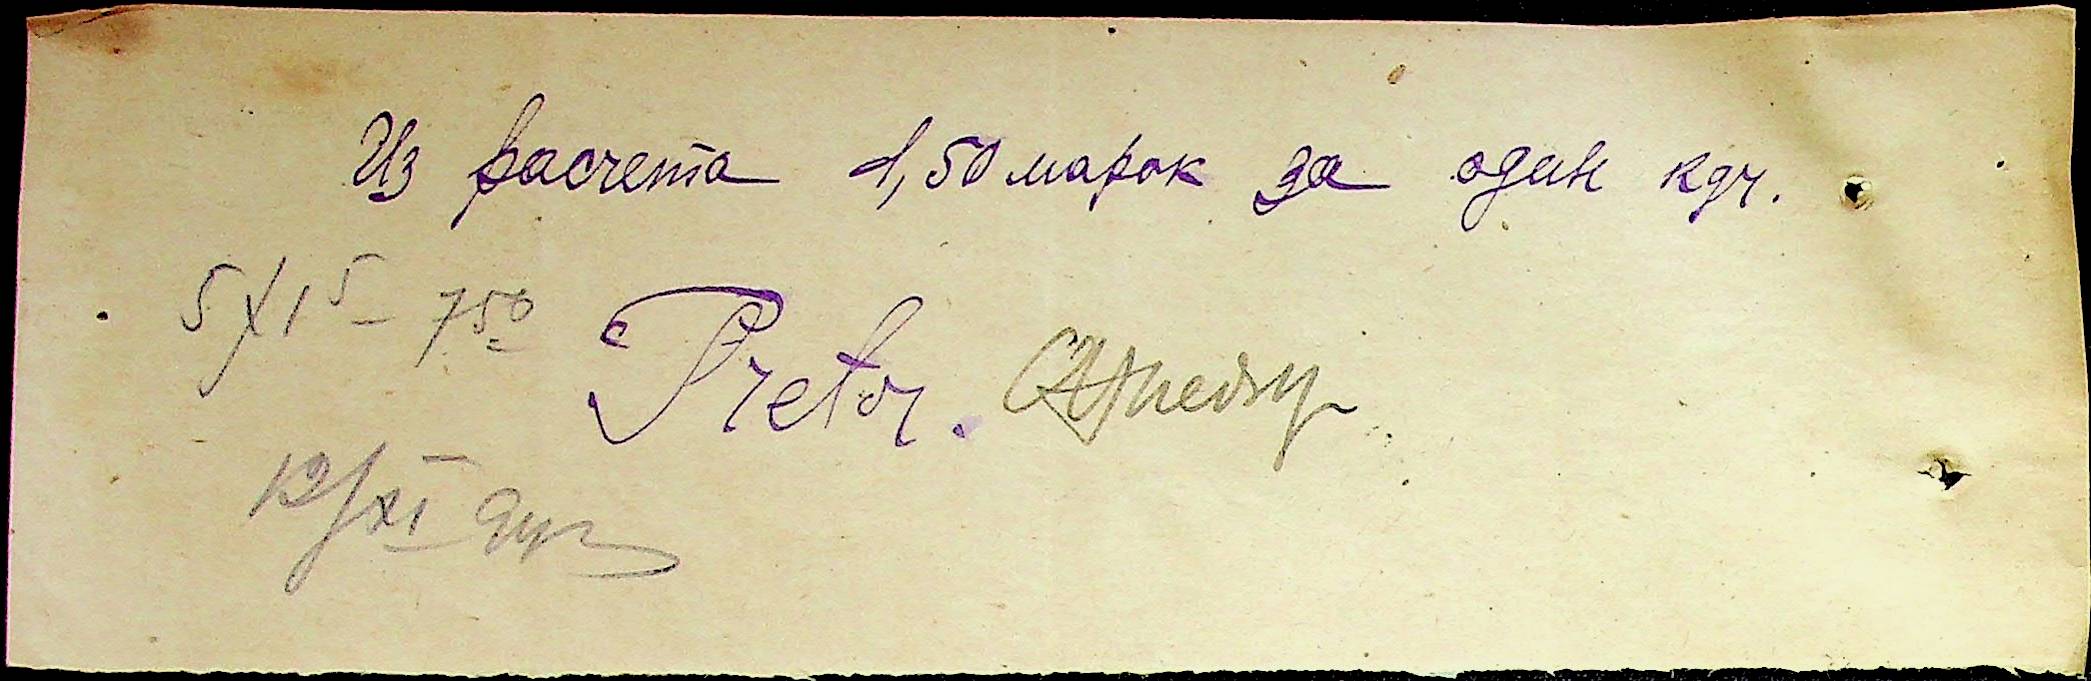 Из расчета 1,50 марок за один кдч.
5 X 1⁵ – 7⁵⁰
Pretor.
12/XI